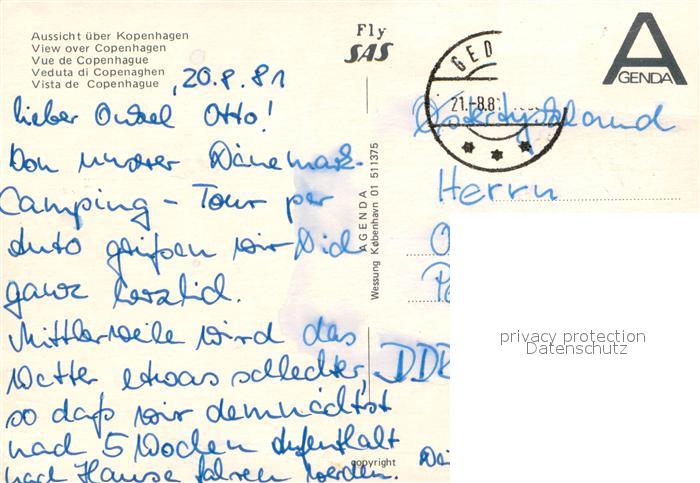 Aussicht über Kopenhagen
View over Copenhagen
Vue de Copenhague
Veduta di Copenaghen
Vista de Copenhague
Fly
SAS
A
AGENDA
, 20.8.81
GED
21.-8.8
lieber Onkel Otto!
Von unserer Dänemark-
Camping - Tour per
Auto grüßen wir Dich
ganz herzlich.
Mittlerweile wird das
Wetter etwas schlechter,
so daß wir demnächst
nach 5 Wochen Aufenthalt
nach Hause fahren werden.
AGENDA
Wessung København 01 511375
copyright
Herrn
O
DDR
privacy protection
Datenschutz